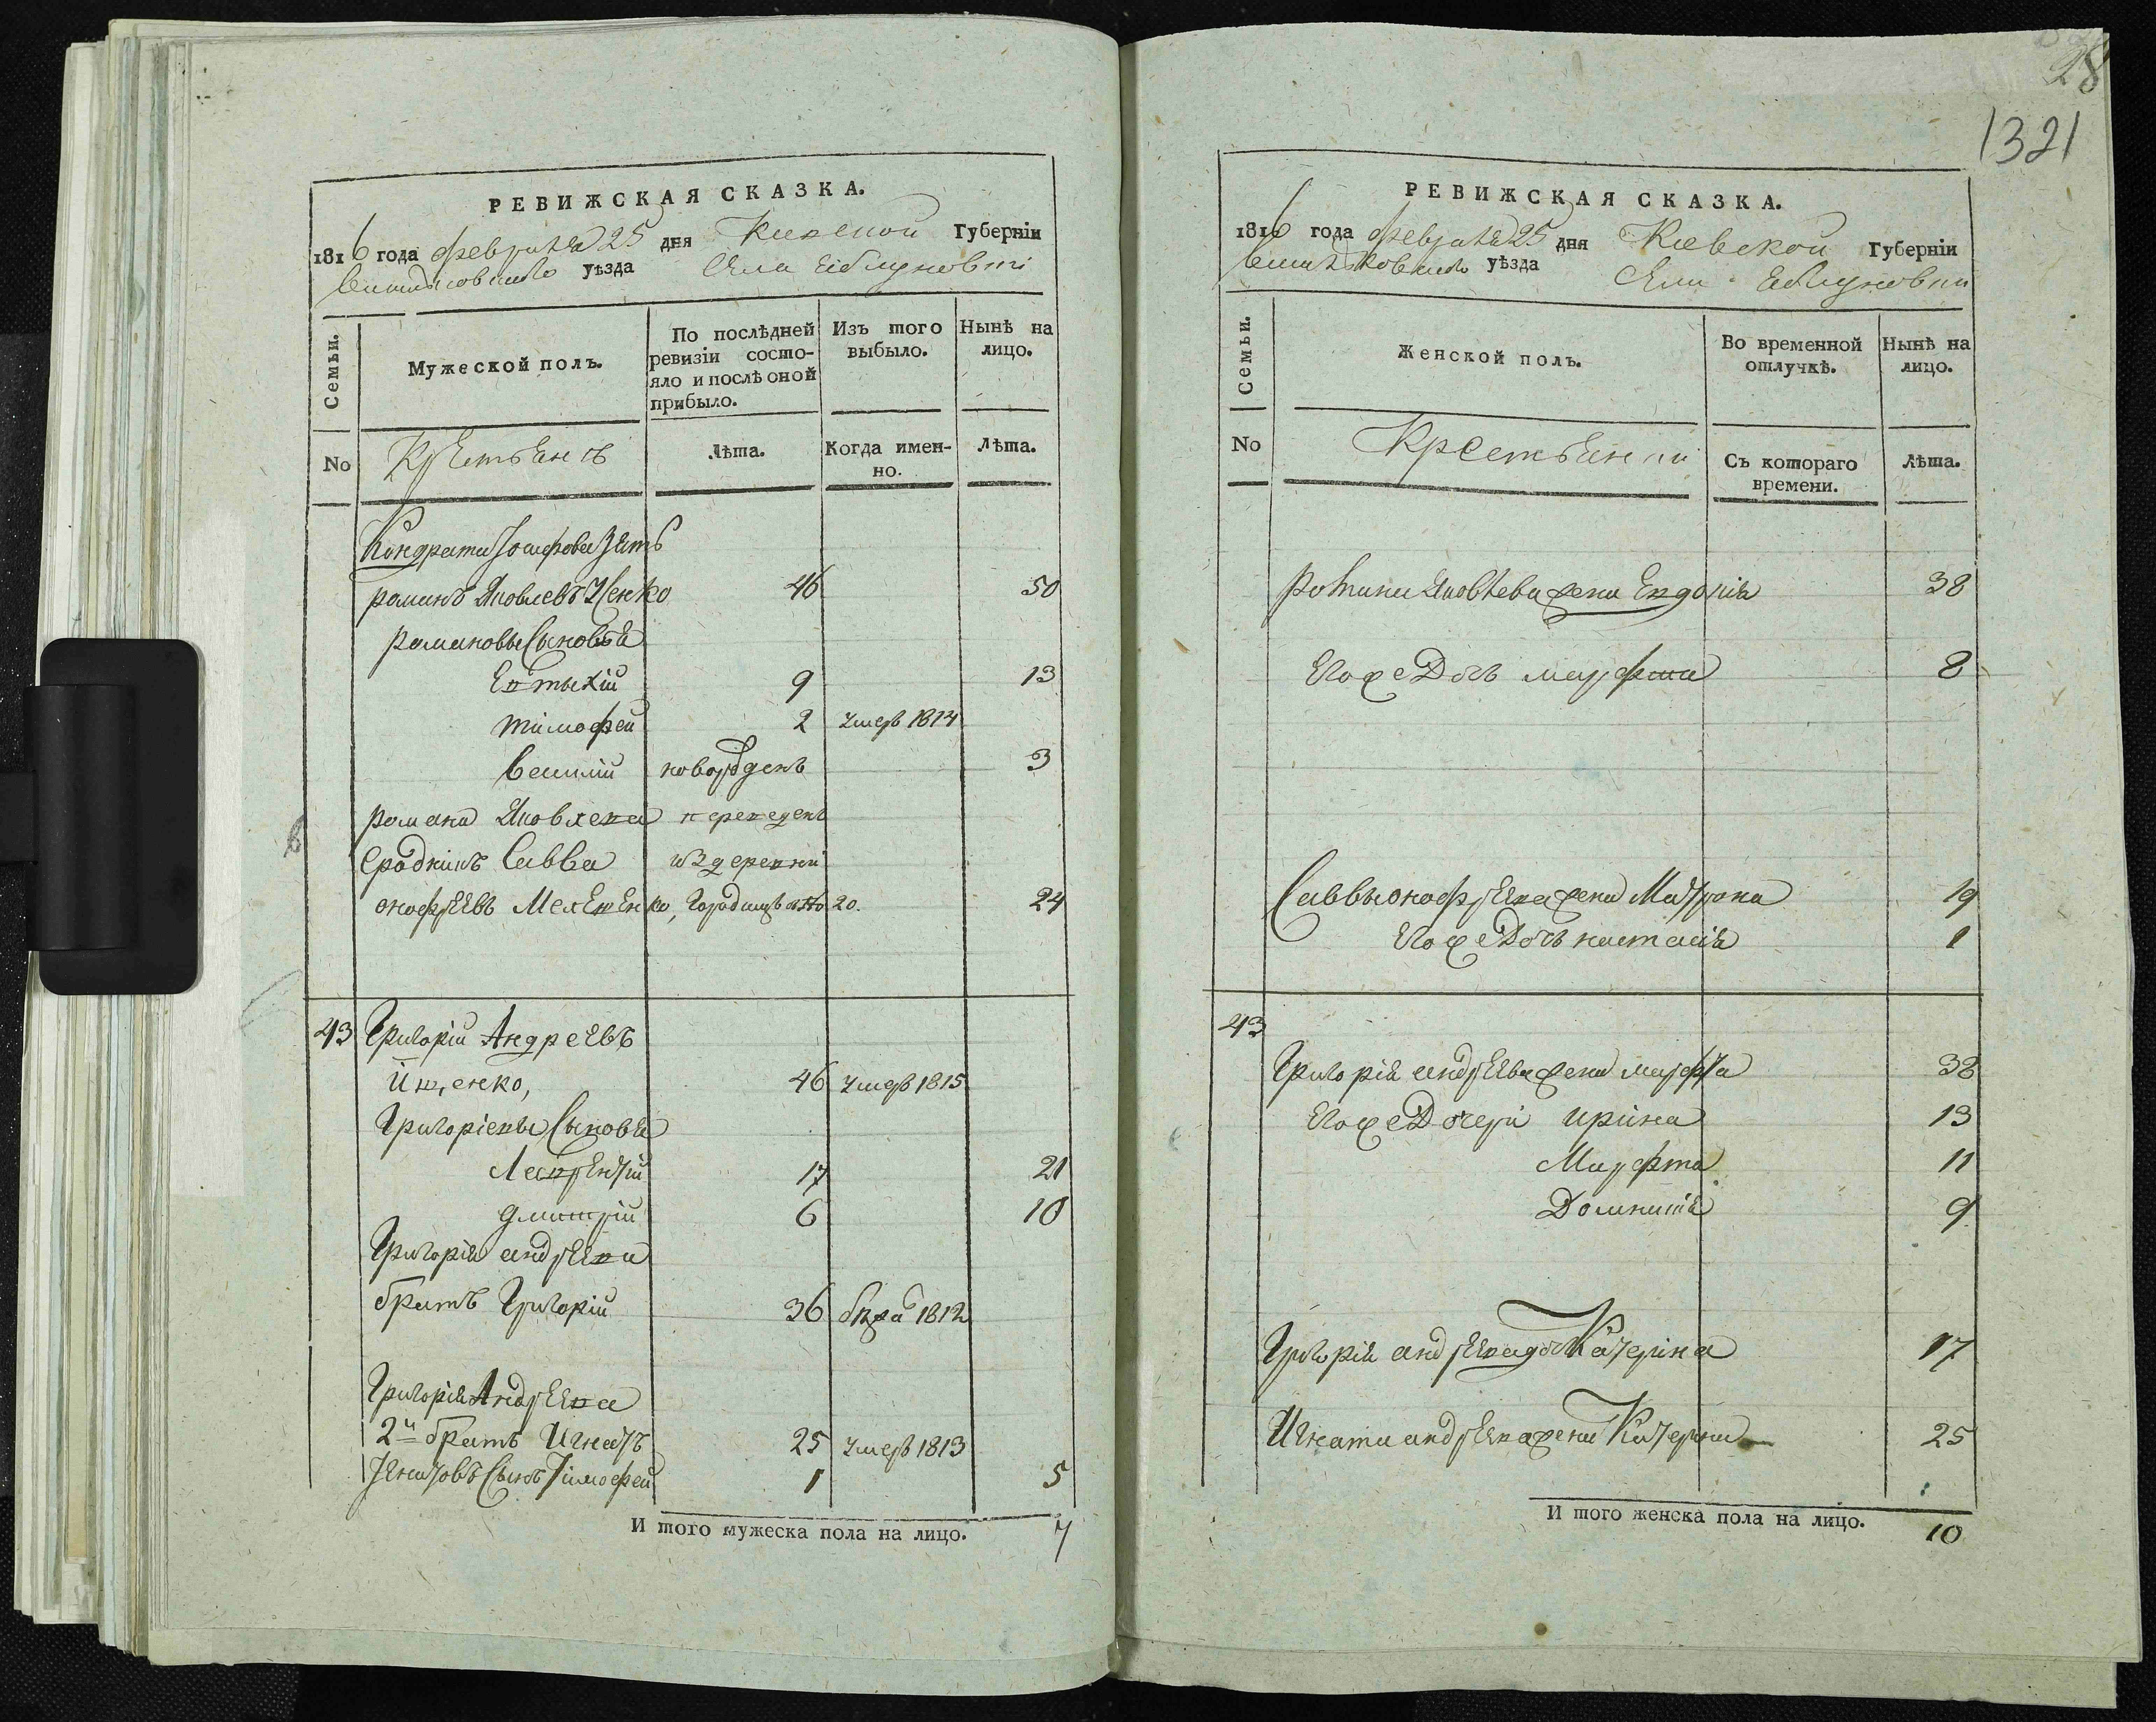 РЕВИЖСКАЯ СКАЗКА.
1816 года февраля 25 дня Киевской Губерніи
уѣзда Села Еіблуновки
Семьи.
Мужеской полъ.
По послѣдней ревизіи состо-
яло и послѣ оной прибыло.
Изъ того выбыло.
Нынѣ на лицо.
No
Лѣта.
Когда имен-
но.
Лѣта.
Кондрата Іосифова зять
романъ Яковлевъ 46 50
романовы Сыновья
Евтыхій 9 13
тимофей 2 умеръ 1814
Василій новорожденъ 3
романа Яковлева переведенъ
Сродникъ Савва изъ деревни
онофрѣевъ 20. 24
43 Григорій Андреевъ
46 умеръ 1815
Григоріевы Сыновья
Лаврентій 17 21
дмитрій 6 10
Григорія андрѣева
братъ Григорій 36 1812
Григорія Андрѣева
2й братъ Игнатъ 25 умеръ 1813
Сынъ Тимофей 1 5
И того мужеска пола на лицо. 7
28
1321
РЕВИЖСКАЯ СКАЗКА.
1816 года февраля 25 дня Киевской Губерніи
уѣзда Села Еіблуновки
Семьи.
Женской полъ.
Во временной отлучкѣ.
Нынѣ на лицо.
No
Съ котораго времени.
Лѣта.
романа Яковлева жена Евдокія 38
Егоже Дочь марфта 8
Саввы онофрѣева жена Матрона 19
Егоже Дочь настасія 1
43
Григорія андрѣева жена марфта 38
Егоже Дочери ирина 13
Марфта 11
Домникія 9
Григорія андрѣева дочь Катерина 17
Игната андрѣева жена Катерина 25
И того женска пола на лицо. 10